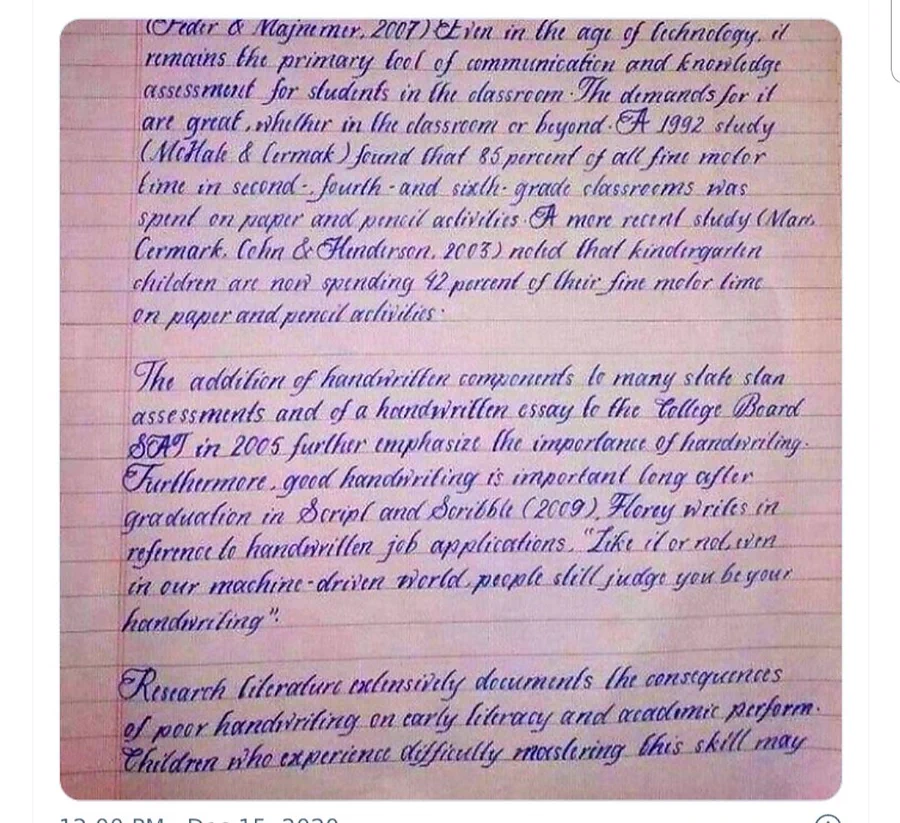 (Feder & Majnemer, 2007) Even in the age of technology, it
remains the primary tool of communication and knowledge
assessment for students in the classroom. The demands for it
are great, whether in the classroom or beyond. A 1992 study
(McHale & Cermak) found that 85 percent of all fine motor
time in second-, fourth-and sixth-grade classrooms was
spent on paper and pencil activities. A more recent study (Marr,
Cermark, Cohn & Henderson, 2003) noted that kindergarten
children are now spending 42 percent of their fine motor time
on paper and pencil activities.
The addition of handwritten components to many state stan
assessments and of a handwritten essay to the College Board
SAT in 2005 further emphasize the importance of handwriting.
Furthermore, good handwriting is important long after
graduation in Script and Scribble (2009), Florey writes in
reference to handwritten job applications, "Like it or not, even
in our machine-driven world, people still judge you be your
handwriting".
Research literature extensively documents the consequences
of poor handwriting on early literacy and academic perform.
Children who experience difficulty mastering this skill may
12:00 PM · Dec 15, 2020